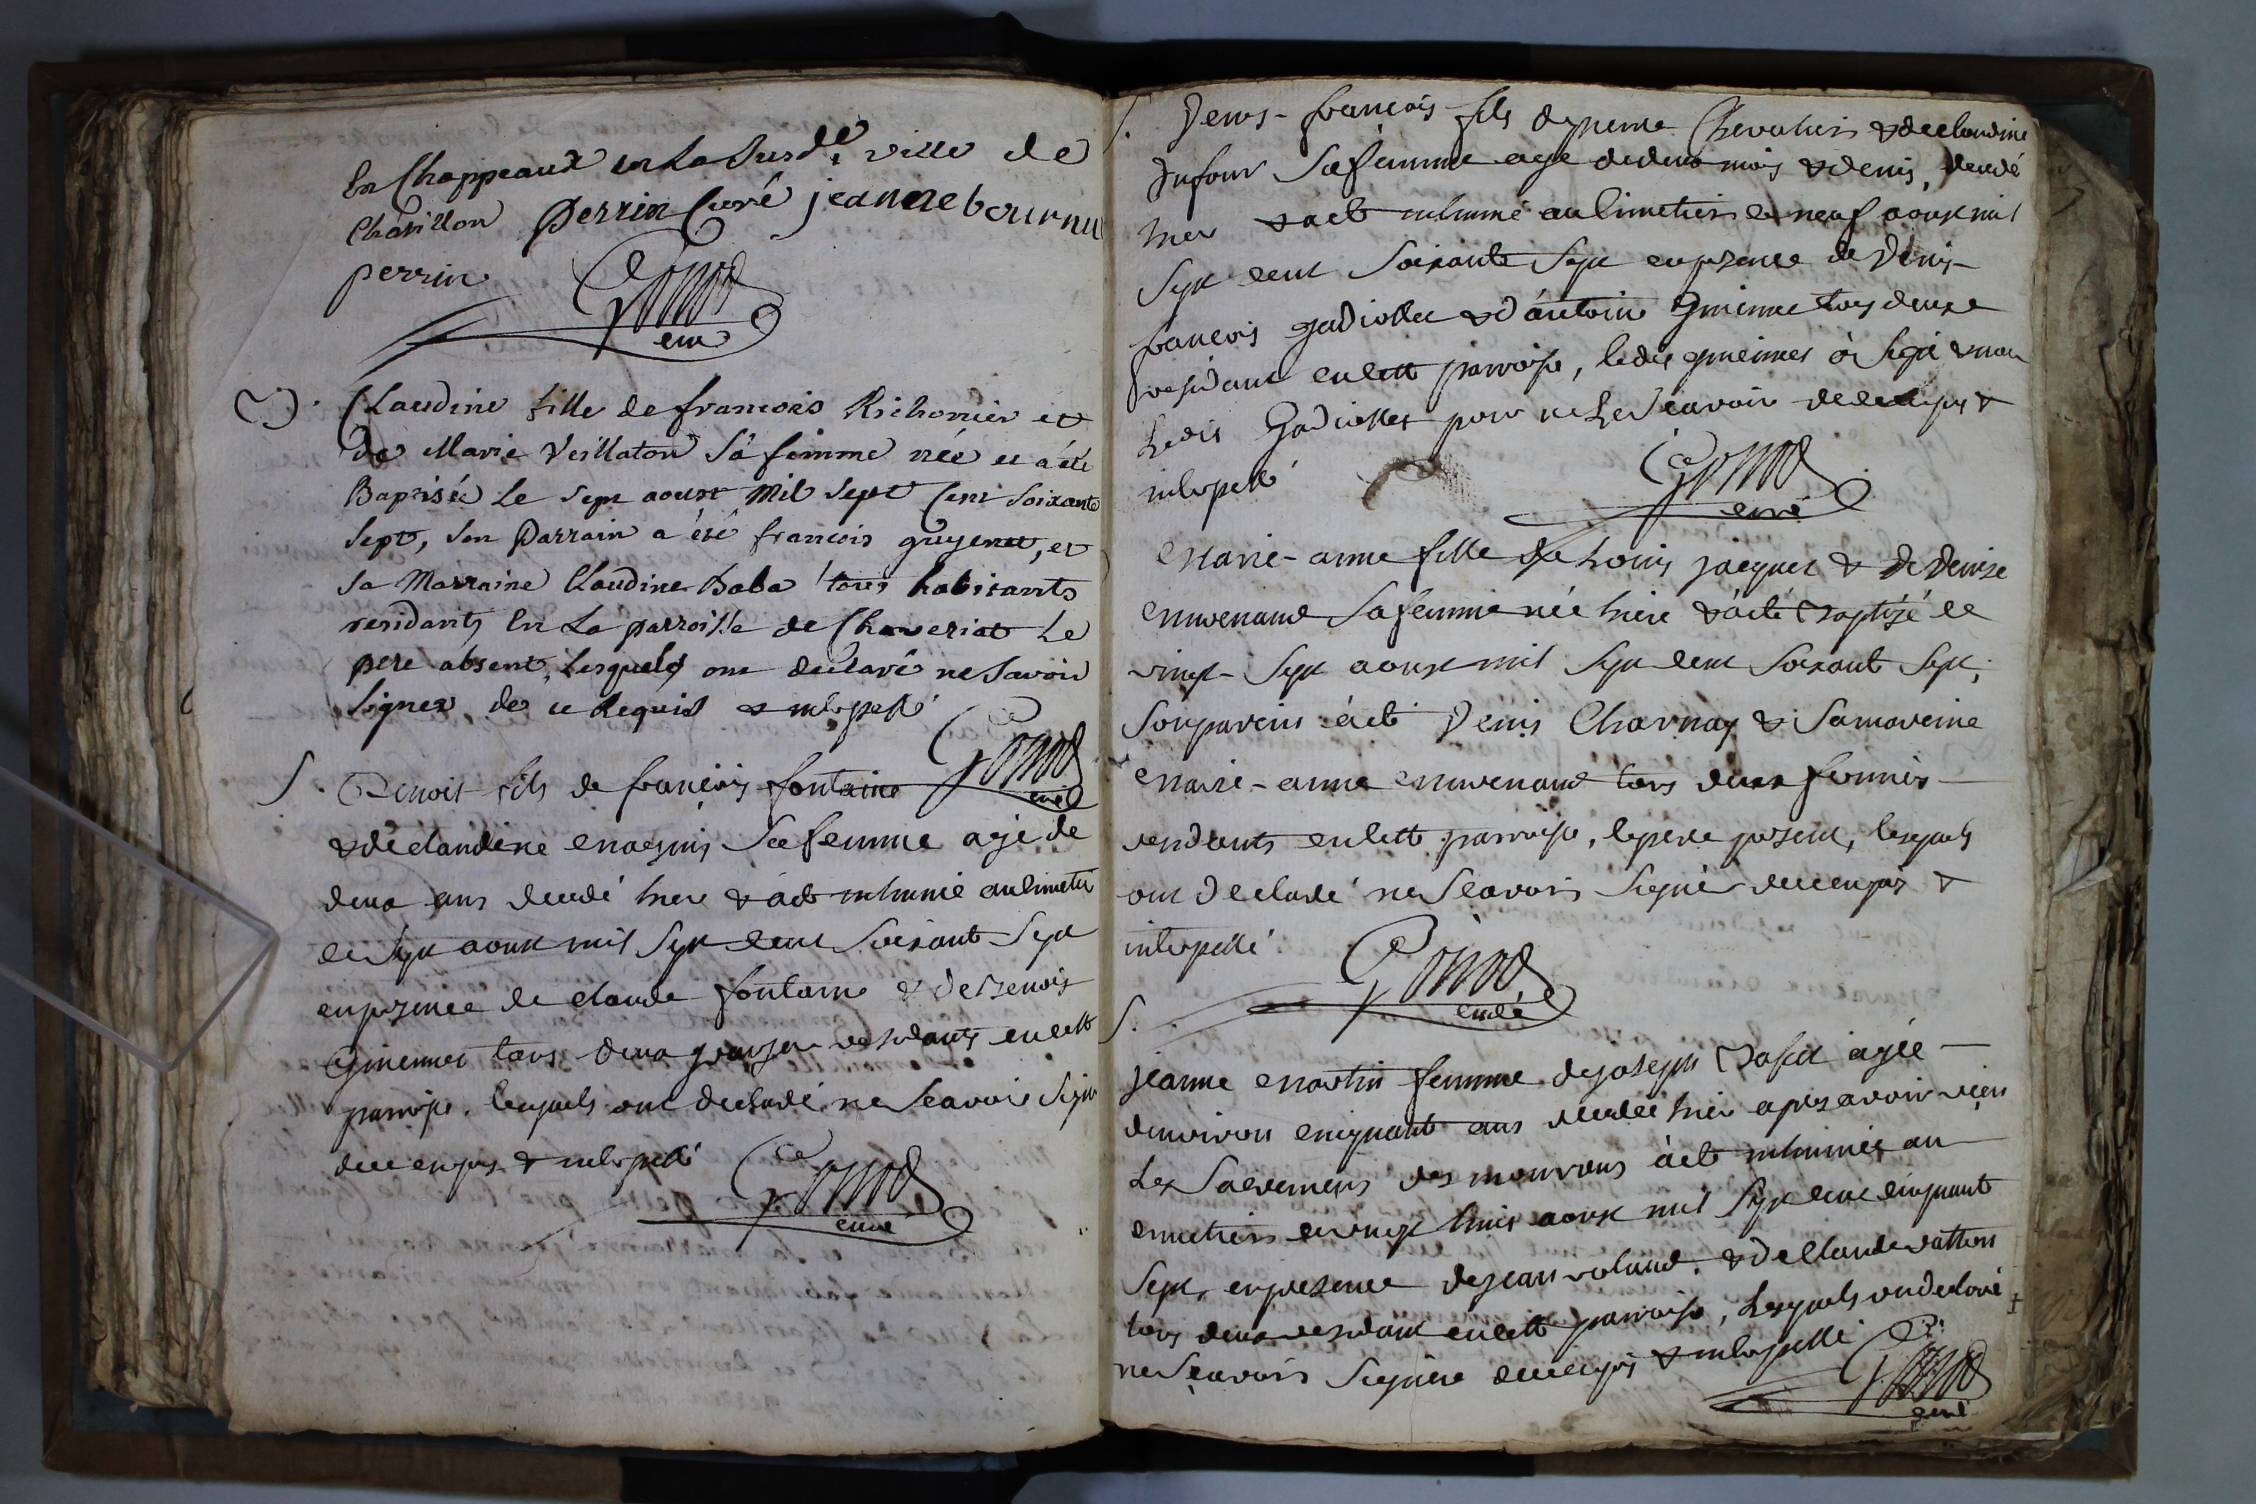 En Chappeaux en La Susde. ville de
Chatillon perrin Curé jeanne bournu
perrin Gonod
curé
Claudine fille de francois Richonier et
de Marie Veillaton sa femme née et a été
Baptisée Le sept aoust mil sept Cent soixante
sept, son Parrain a été francois guyenet, et
sa Marraine Claudine Baba tous habitants
residants En La parroisse de Chaveriat Le
pere absent, Lesquels ont declaré ne savoir
signer de ce Requis & interpellé
Gonod
curé
S. Benoit fils de francois fontaine
& de claudine sa femme agé de
deux ans decedé hier & a eté inhumé au cimetier
le sept aoust mil sept cent soixant sept
en presence de claude fontaine & de Benoit
tous deux residants en cette
parroisse, lesquels ont declaré ne scavoir signer
de ce enquis & interpellé Gonod
curé
S. Denis-francois fils de pierre Chevalier & de claudine
Dufour sa femme agé de deux mois & demis, decedé
hier & a eté inhumé au cimetier le neuf aoust mil
sept cent soixante sept en presence de Denis
francois gadiollet & d'antoine tous deux
residant en cette parroisse, le dit a signé & non
Le dit Gadiollet pour ne Le scavoir de ce enquis &
interpellé Gonod
curé
Marie-anne fille de Louis jacquet & de Denise
sa femme née hier & a eté Baptisé le
vingt-sept aoust mil sept cent soixant sept,
son parein a eté Denis Charnay & sa mareine
Marie-anne tous deux
residants en cette parroisse, le pere present, lesquels
ont declaré ne scavoir signer de ce enquis &
interpellé Gonod
curé
S.
jeanne Martin femme de joseph agée
d'environ cinquante ans decedée hier apres avoir reçeu
Les sacremens des mourrans a eté inhumée au
cimetier le vingt huit aoust mil sept cent cinquante
sept, en presence de jean roland & de Claude vatton
tous deux residant en cette parroisse, Lesquels ont declaré
ne sçavoir signer de ce enquis & interpellé
Gonod
curé